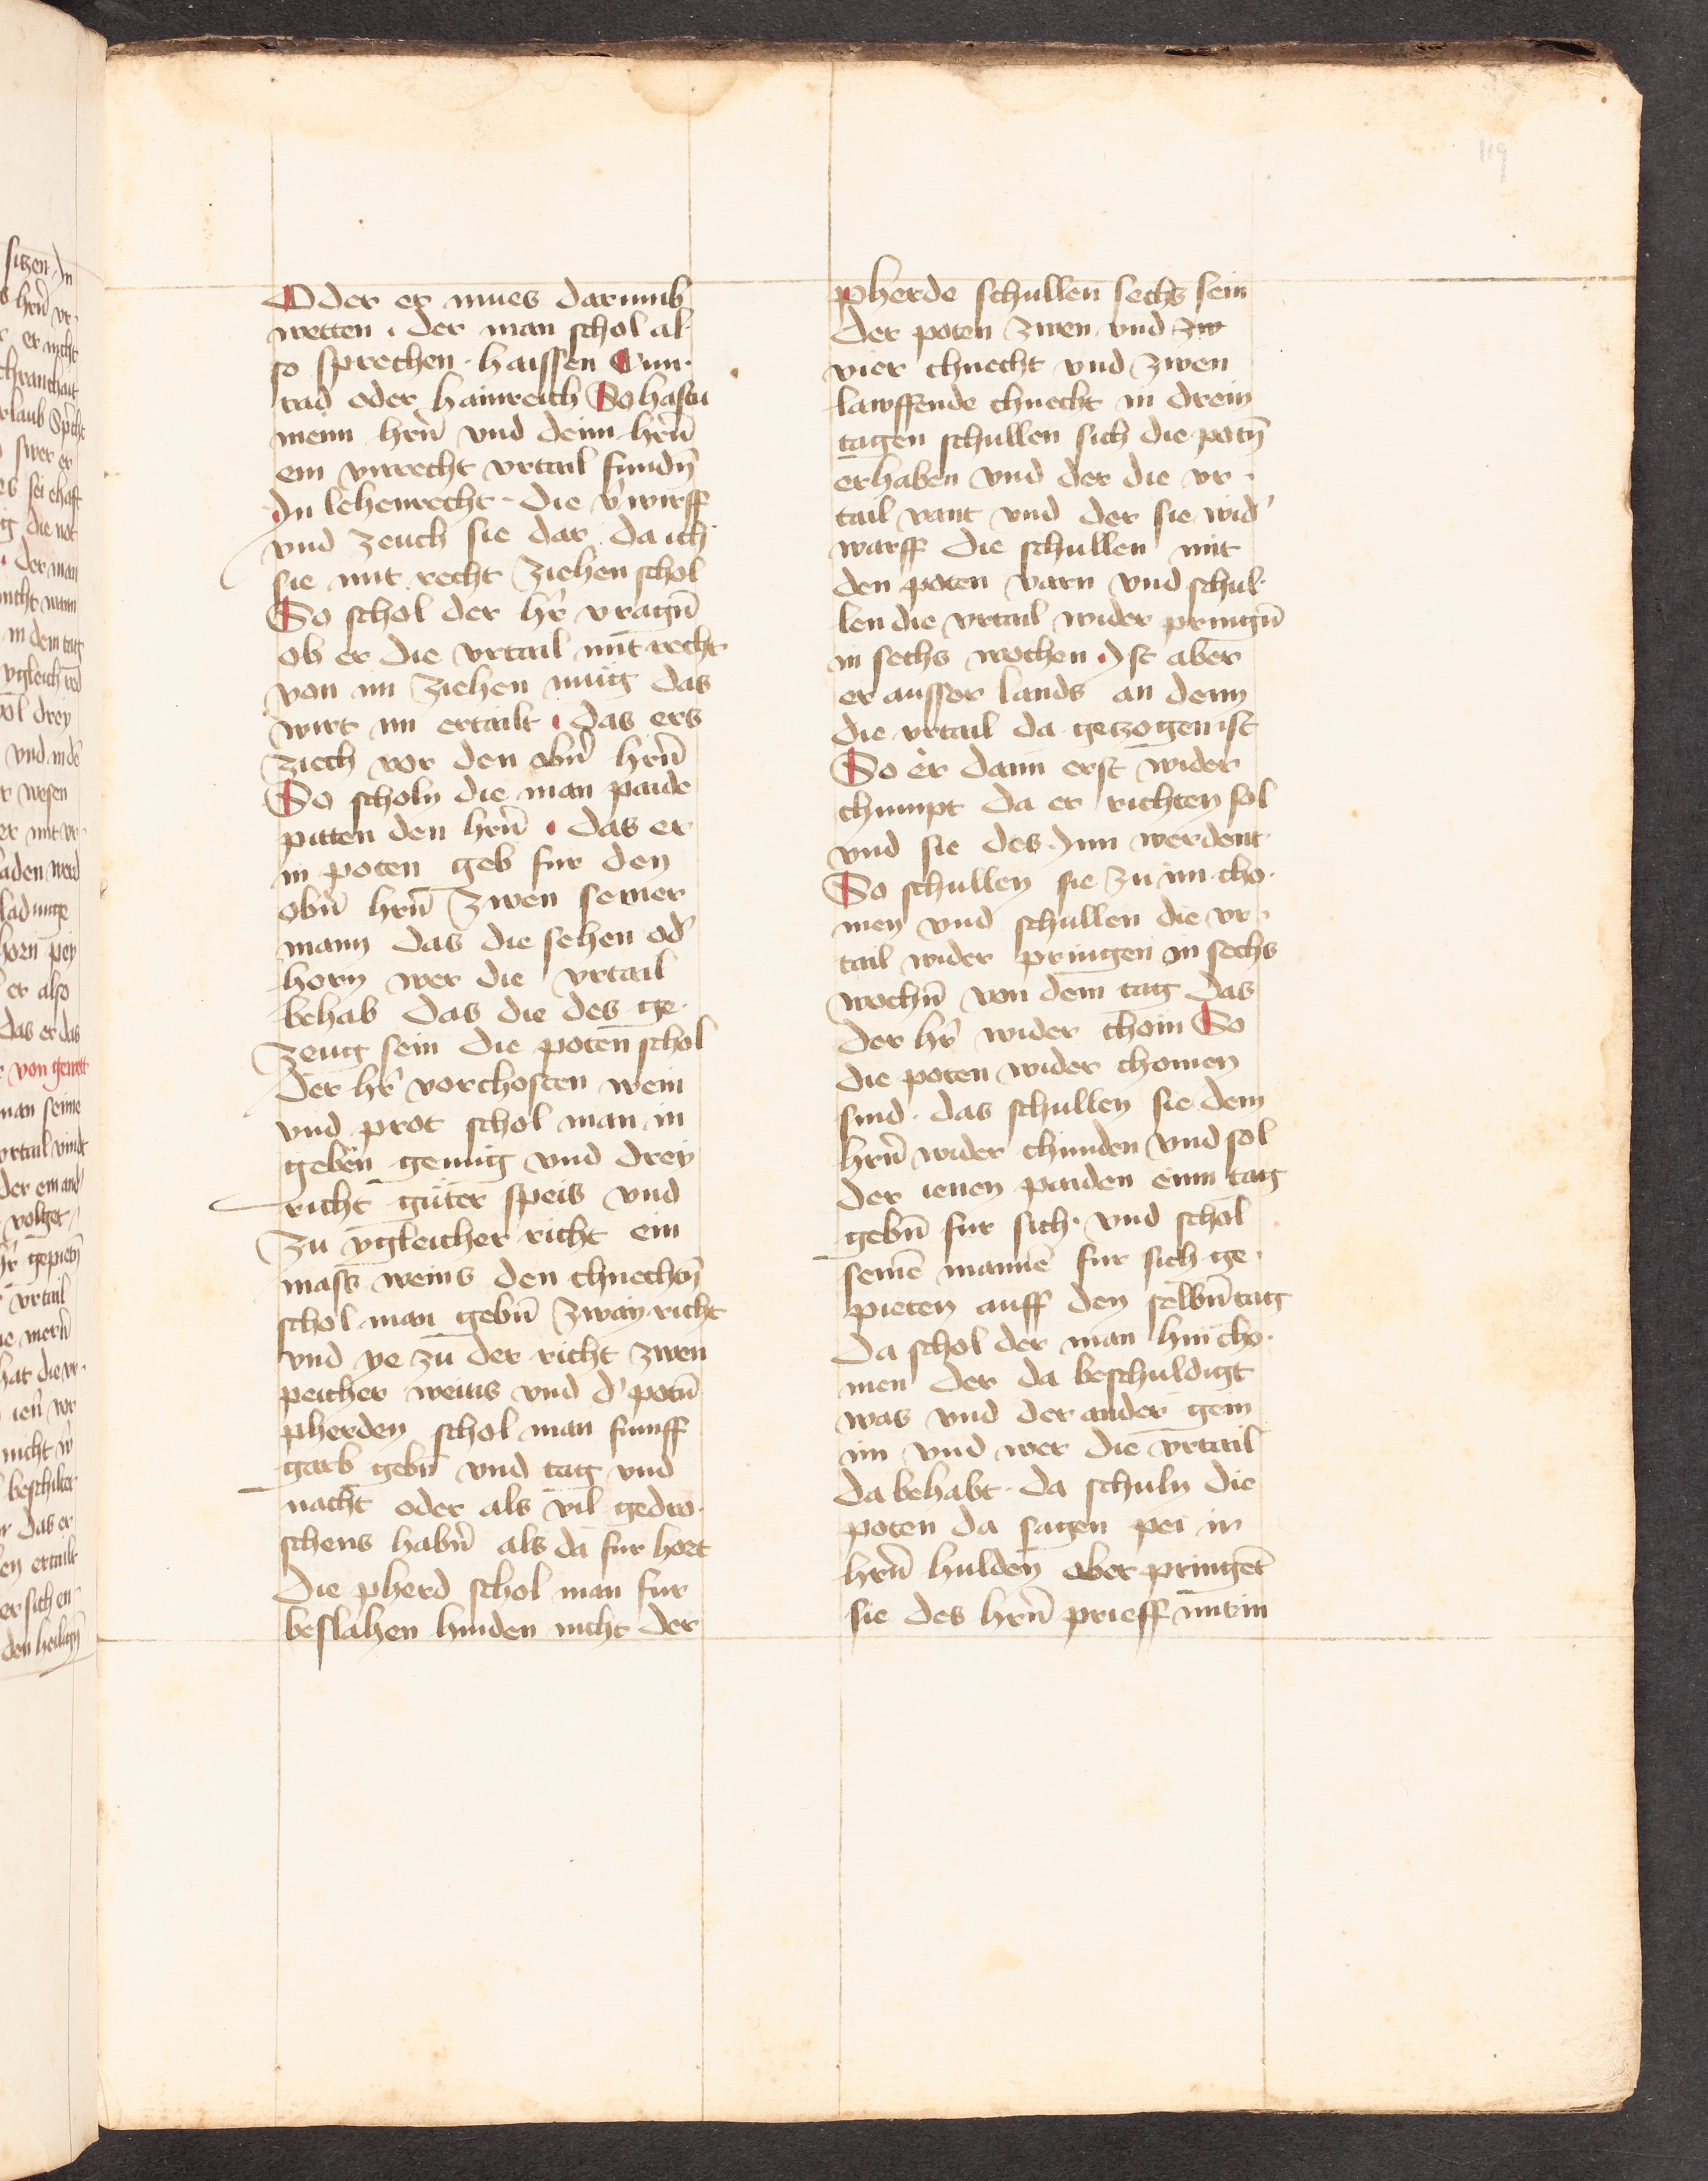 119
Oder er mues darumb
wetten . der man schol al-
so sprechen . haissen Cun-
rad oder hainreich So hastu
meim hrn̄ vnd deim hrn̄
ein vnrecht vrtail fundn̄
In lehenrecht . die v'wirff
vnd zeuch sie dar . da ich
sie mit recht ziehen schol
So schol der hr̄ vragn̄
ob er die vrtail mit recht
von im ziehen müg das
wirt im ertailt . das ers
ziech vor den obn̄ hrn̄
So scholn die man paide
pitten den hrn̄ . das er
in poten geb fur den
obn̄ hrn̄ zwen seiner
mann das die sehen od'
horn wer die vrtail
behab das die des ge-
zeug sein die poten schol
der hr̄ vorchosten wein
vnd prot schol man in
geben genug vnd drey
richt guter speis vnd
zu ygleicher richt ein
mass weins den chnechtn̄
schol man gebn̄ zway richt
vnd ye zu der richt zwen
peicher weins vnd d' potn̄
pherden schol man funff
garb gebn̄ vnd tag vnd
nacht oder als vil gedro-
schens habn̄ als da fur hort
die pherd schol man fur
beslahen hinden nicht der
pherde schullen sechs sein
der poten zwen vnd zw
vier chnecht vnd zwen
lawffende chnecht in drein
tagen schullen sich die potn̄
erhaben vnd der die vr-
tail vant vnd der sie wid'
warff die schullen mit
den poten varn vnd schul-
len die vrtail wider pringn̄
in sechs wochen . Ist aber
er ausser lands an dem
die vrtail da gezogen ist
So er dann erst wider
chumpt da er richten sol
vnd sie des . Inn werdent
So schullen sie zu im cho-
men vnd schullen die vr-
tail wider pringen in sechs
wochn̄ von dem tag das
der hr̄ wider chom So
die poten wider chomen
sind . das schullen sie dem
hrn̄ wider chunden vnd sol
der ienen paiden einn tag
gebn̄ fur sich . vnd schol
seinē mannē fur sich ge-
pieten auff den selbn̄ tag
da schol der man hin cho-
men der da beschuldigt
was vnd der ander gem
im vnd wer die vrtail
da behabt . da schuln die
poten da sagen pei ir
hrn̄ hulden ober pringēt
sie des hrn̄ prieff mit in